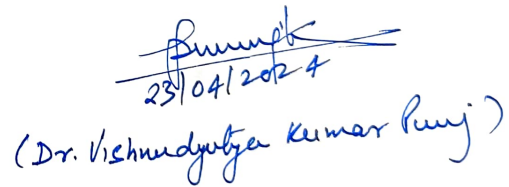 23/04/2024
(Dr. Vishnudyutya Kumar Punj)